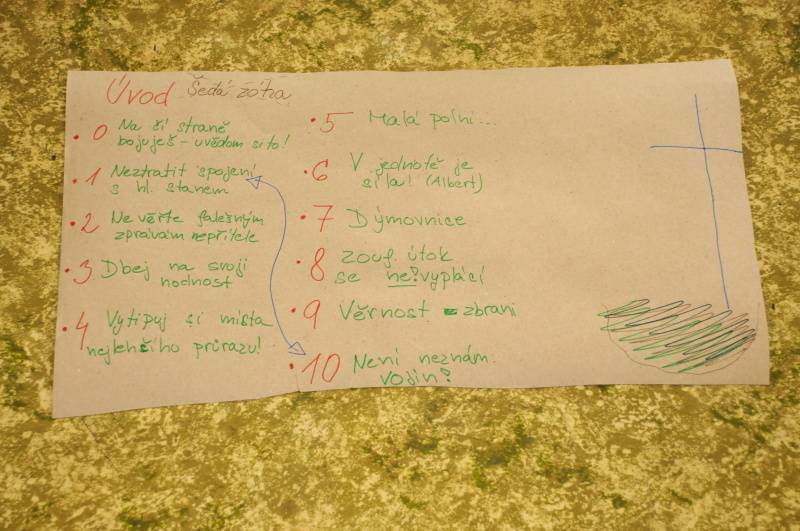 Úvod Šedá zóna
• 0 Na čí straně
bojuješ - uvědom si to!
• 1 Neztratit spojení
s hl. stanem
• 2 Ne věřte falešným
zprávám nepřítele
• 3 Dbej na svoji
hodnost
• 4 Vytipuj si místa
nejlehčího průrazu!
• 5 Malá polní...
• 6 V jednotě je
síla! (Albert)
• 7 Dýmovnice
• 8 zouf. útok
se ne?vyplácí
• 9 Věrnost - zbrani
• 10 Není neznám.
vojín?